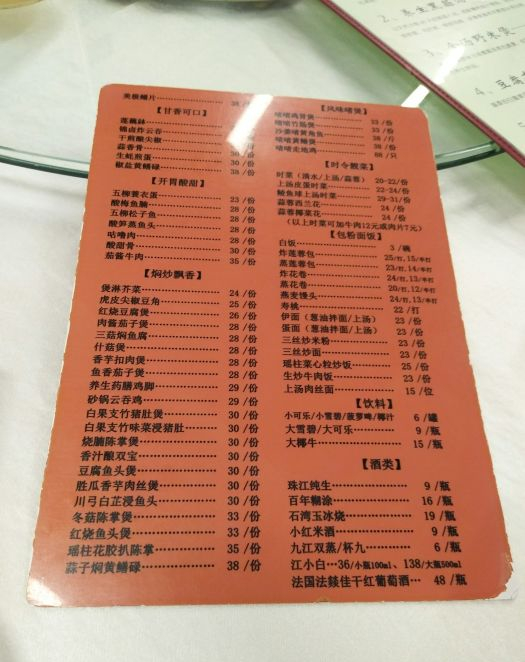 美极鳝片 38 /份
【甘香可口】
莲藕鉢
锦卤炸云吞
干煎酿尖椒
蒜香骨
生蚝煎蛋 30 /份
椒盐黄鳝碌 38 /份
【开胃酸甜】
五柳蓑衣蛋 23 /份
酸梅鱼腩 28 /份
五柳松子鱼 28 /份
酸笋蒸鱼头 28 /份
咕噜肉 30 /份
酸甜骨 30 /份
茄酱牛肉 35 /份
【焖炒飘香】
煲淋芥菜 24 /份
虎皮尖椒豆角 25 /份
红烧豆腐煲 26 /份
肉酱茄子煲 28 /份
三菇焖鱼腐 28 /份
什菇煲 28 /份
香芋扣肉煲 28 /份
鱼香茄子煲 28 /份
养生药膳鸡脚 29 /份
砂锅云吞鸡 29 /份
白果支竹猪肚煲 30 /份
白果支竹味菜浸猪肚 30 /份
烧腩陈掌煲 30 /份
香汁酿双宝 30 /份
豆腐鱼头煲 30 /份
胜瓜香芋肉丝煲 30 /份
川弓白芷浸鱼头 30 /份
冬菇陈掌煲 33 /份
红烧鱼头煲 33 /份
瑶柱花胶扒陈掌 35 /份
蒜子焖黄鳝碌 38 /份
【风味啫煲】
啫啫鸡肾煲 33 /份
啫啫竹肠煲 33 /份
沙姜啫黄角鱼 38 /斤
啫啫黄鳝煲 38 /份
啫啫走地鸡 88 /只
【时令靓菜】
时菜（清水/上汤/蒜蓉） 20-22/份
上汤皮蛋时菜 22-24/份
鲮鱼球上汤时菜 29-31/份
蒜蓉西兰花 24 /份
蒜蓉椰菜花 24 /份
（以上时菜可加牛肉12元或肉片7元）
【包粉面饭】
白饭 3 /碗
炸莲蓉包 25/打,15/半打
蒸莲蓉包 23/打,14/半打
炸花卷 24/打,13/半打
蒸花卷 20/打,12/半打
燕麦馒头 24/打,13/半打
寿桃 22 /打
伊面（葱油拌面/上汤） 23 /份
蛋面（葱油拌面/上汤） 23 /份
三丝炒米粉 23 /份
三丝炒面 23 /份
瑶柱菜心粒炒饭 25 /份
生炒牛肉饭 23 /份
上汤肉丝面 15 /位
【饮料】
小可乐/小雪碧/菠萝啤/椰汁 6 /罐
大雪碧/大可乐 9 /瓶
大椰牛 15 /瓶
【酒类】
珠江纯生 9 /瓶
百年糊涂 16 /瓶
石湾玉冰烧 19 /瓶
小红米酒 9 /瓶
九江双蒸/杯九 6 /瓶
江小白…36/小瓶100ml、138/大瓶500ml
法国法燚佳干红葡萄酒 48 /瓶